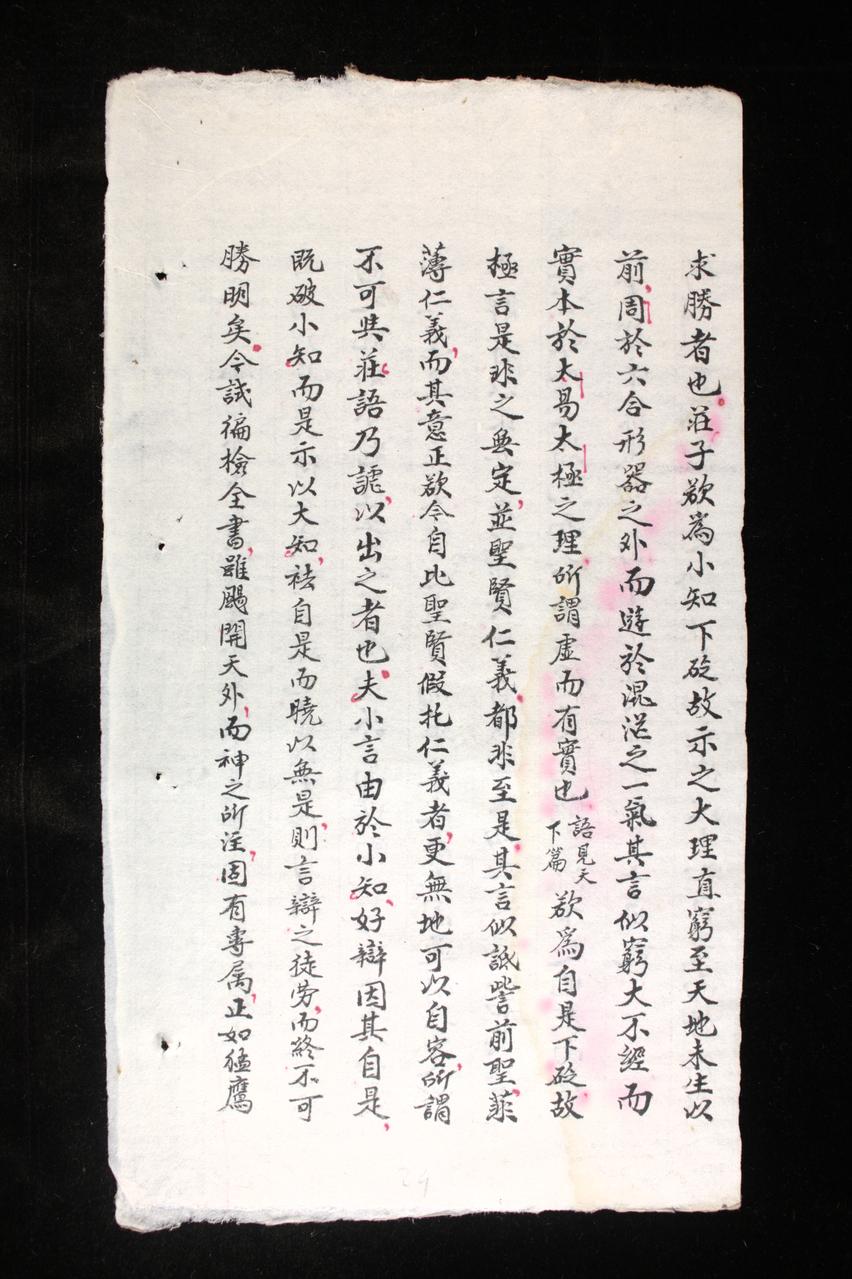 求勝者也莊子欲為小知下砭故示之大理直窮至天地未生以
前周於六合形器之外而遊於混茫之一氣其言似窮大不經而
實本於太易太極之理所謂虛而有實也語見天下篇欲為自是下砭故
極言是非之無定並聖賢仁義都非至是其言似詆訾前聖菲
薄仁義而其意正欲令自比聖賢假托仁義者更無地可以自容所謂
不可與莊語乃謔以出之者也夫小言由於小知好辯因其自是
既破小知而是示以大知祛自是而曉以無是則言辯之徒勞而終不可
勝明矣今試徧檢全書雖颺開天外而神之所注固有專属正如猛鷹